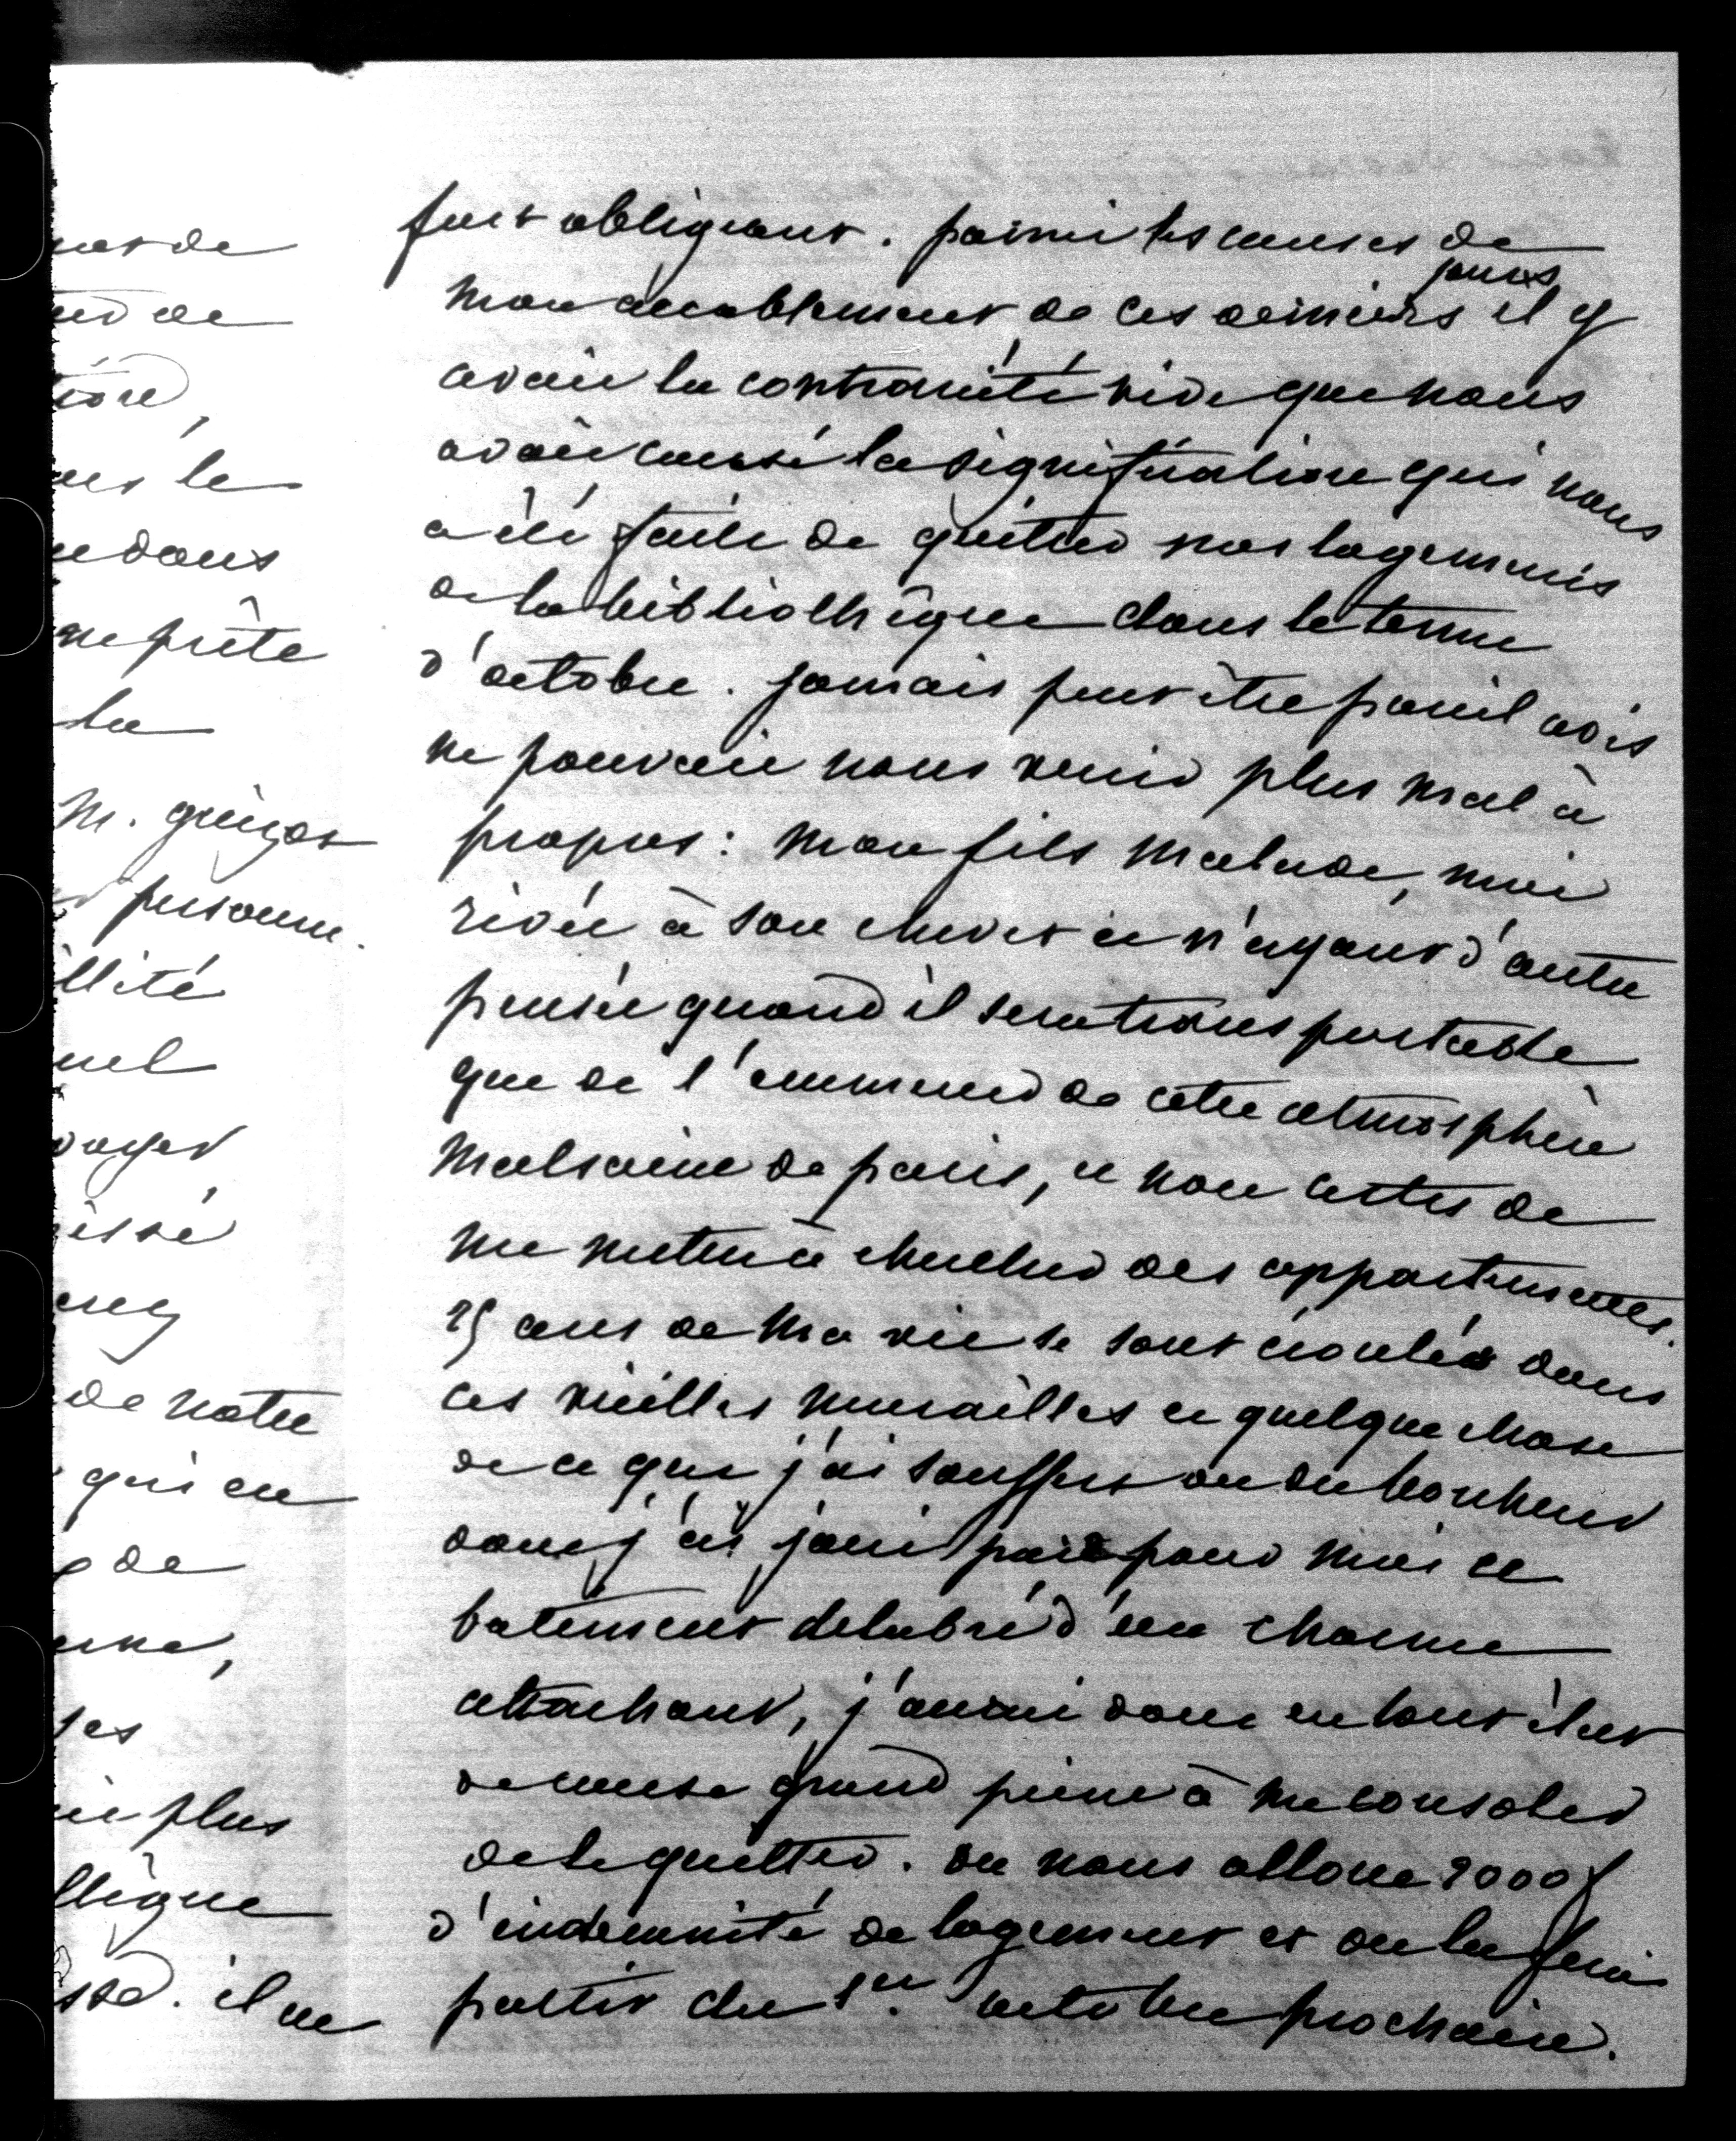 fort obligeant. parmi les causes de
mon accablement de ces derniers jours il y
avait la contrariété vive que nous
avait causé la signification qui nous
a été faite de quitter nos logements
de la bibliothèque dans le terme
d'octobre. jamais peut être pareil avis
ne pouvait nous venir plus mal à
propos: mon fils malade, moi
rivée à son chevet et n'ayant d'autre
pensée quand il sera transportable
que de l'emmener de cette atmosphère
malsaine de paris, et non certes de
me mettre à chercher des appartements.
25 ans de ma vie se sont écoulés dans
ces vieilles murailles et quelque chose
de ce que j'ai souffert ou du bonheur
dont j'ai joui pour moi ce
batiment delabré d'un charme
attachant, j'aurai donc en tout état
de cause grand peine à me consoler
de le quitter. on nous alloue 2000 f
d'indemnité de logement et on la fera
partir du 1er octobre prochain.
de
de
le
dans
prête
la
M.
personne.
llité
uel
de notre
qui en
de
plus
il ne